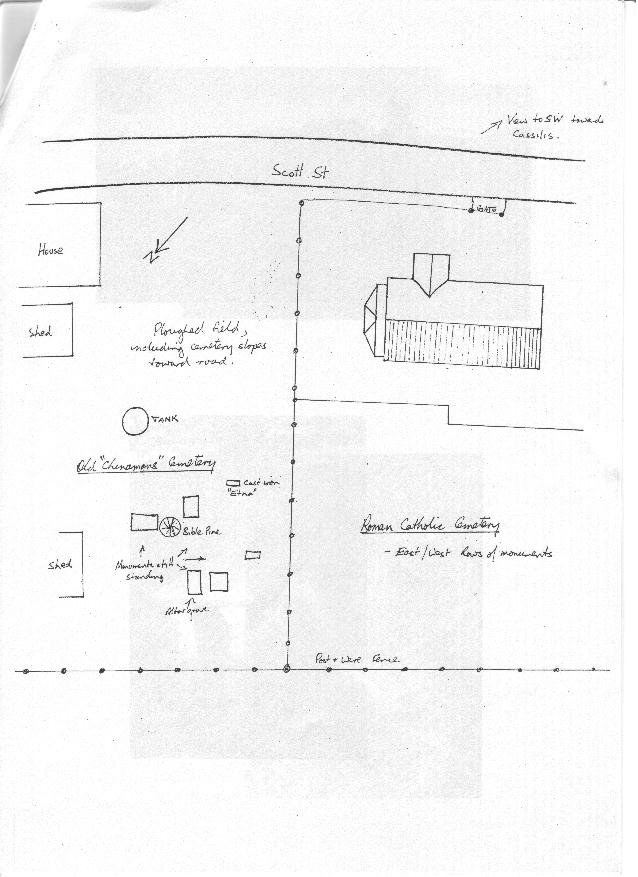 View to SW towards
Cassilis.
Scott St
GATE
House
N
Shed
Ploughed field,
including cemetery slopes
toward road.
TANK
Old "Chinamans" Cemetery
Cast iron
"Etna"
Bible Pine
Roman Catholic Cemetery
- East/West Rows of monuments
Shed
Monuments still
standing
Altar grave
Post + Wire Fence